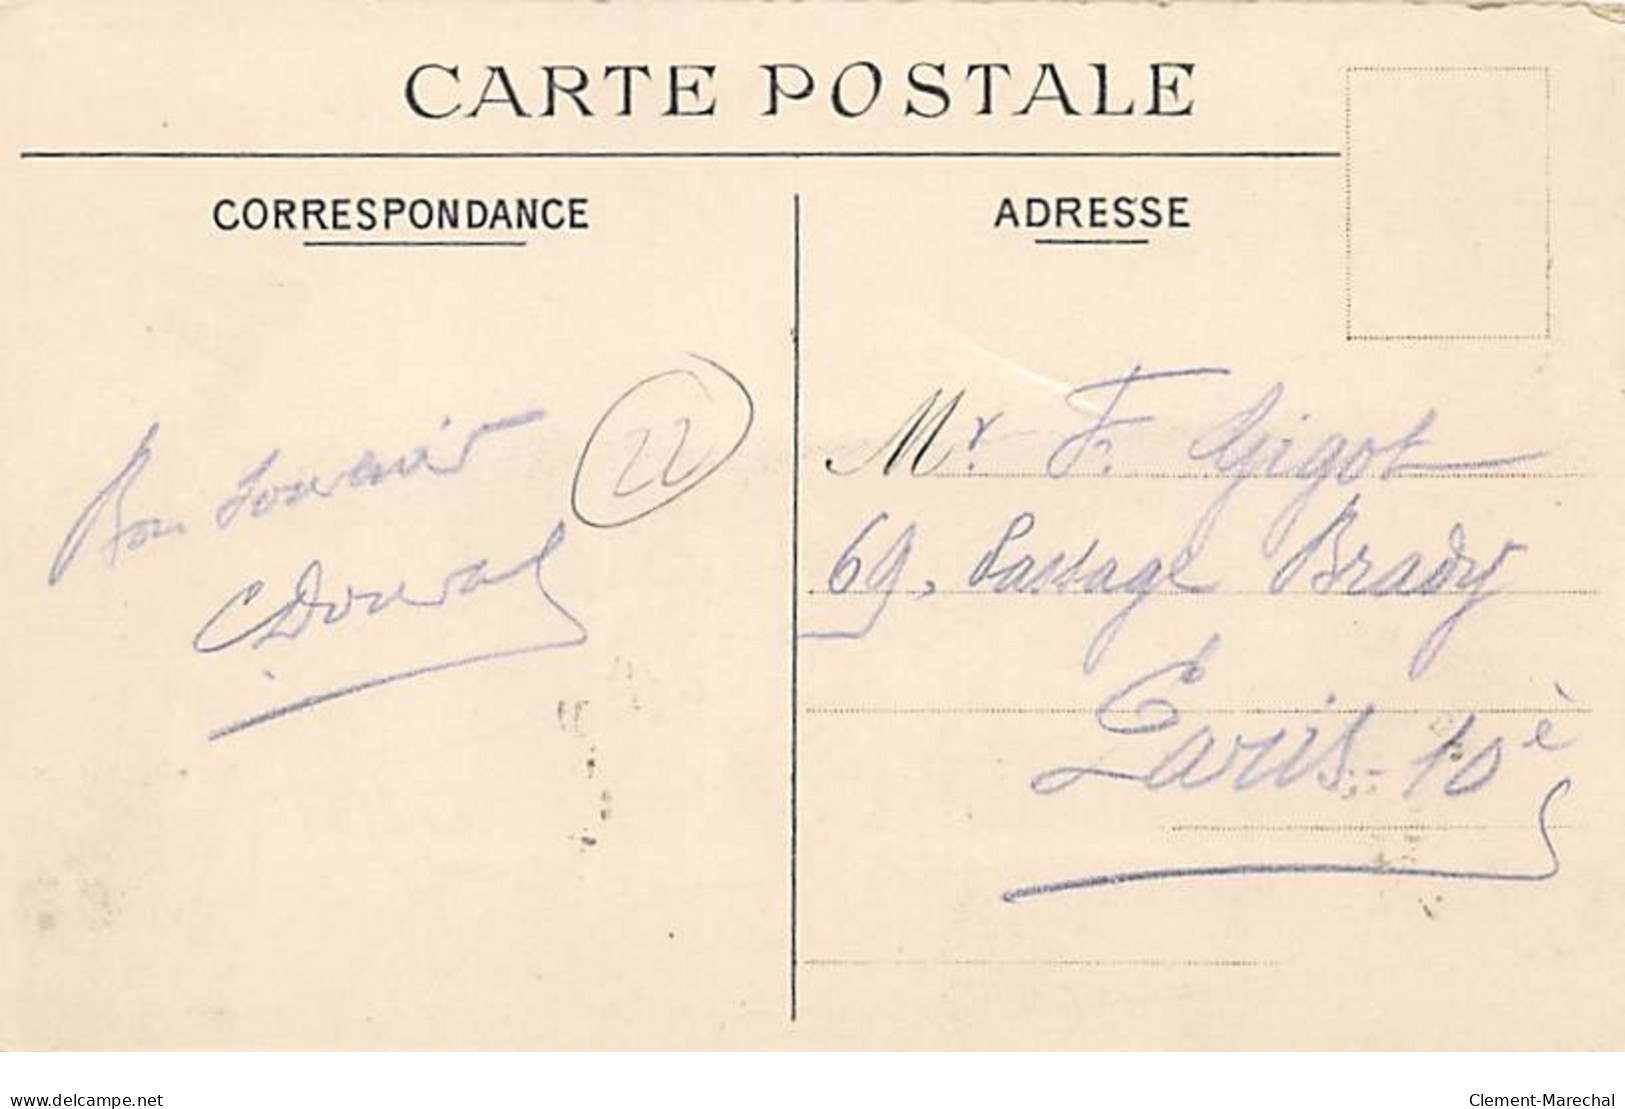 CARTE POSTALE
CORRESPONDANCE
ADRESSE
Bon Souvenir
22
Mr. F. Gigot
69, Passage Brady
Paris 10è
delcampe.net
Clement-Marechal